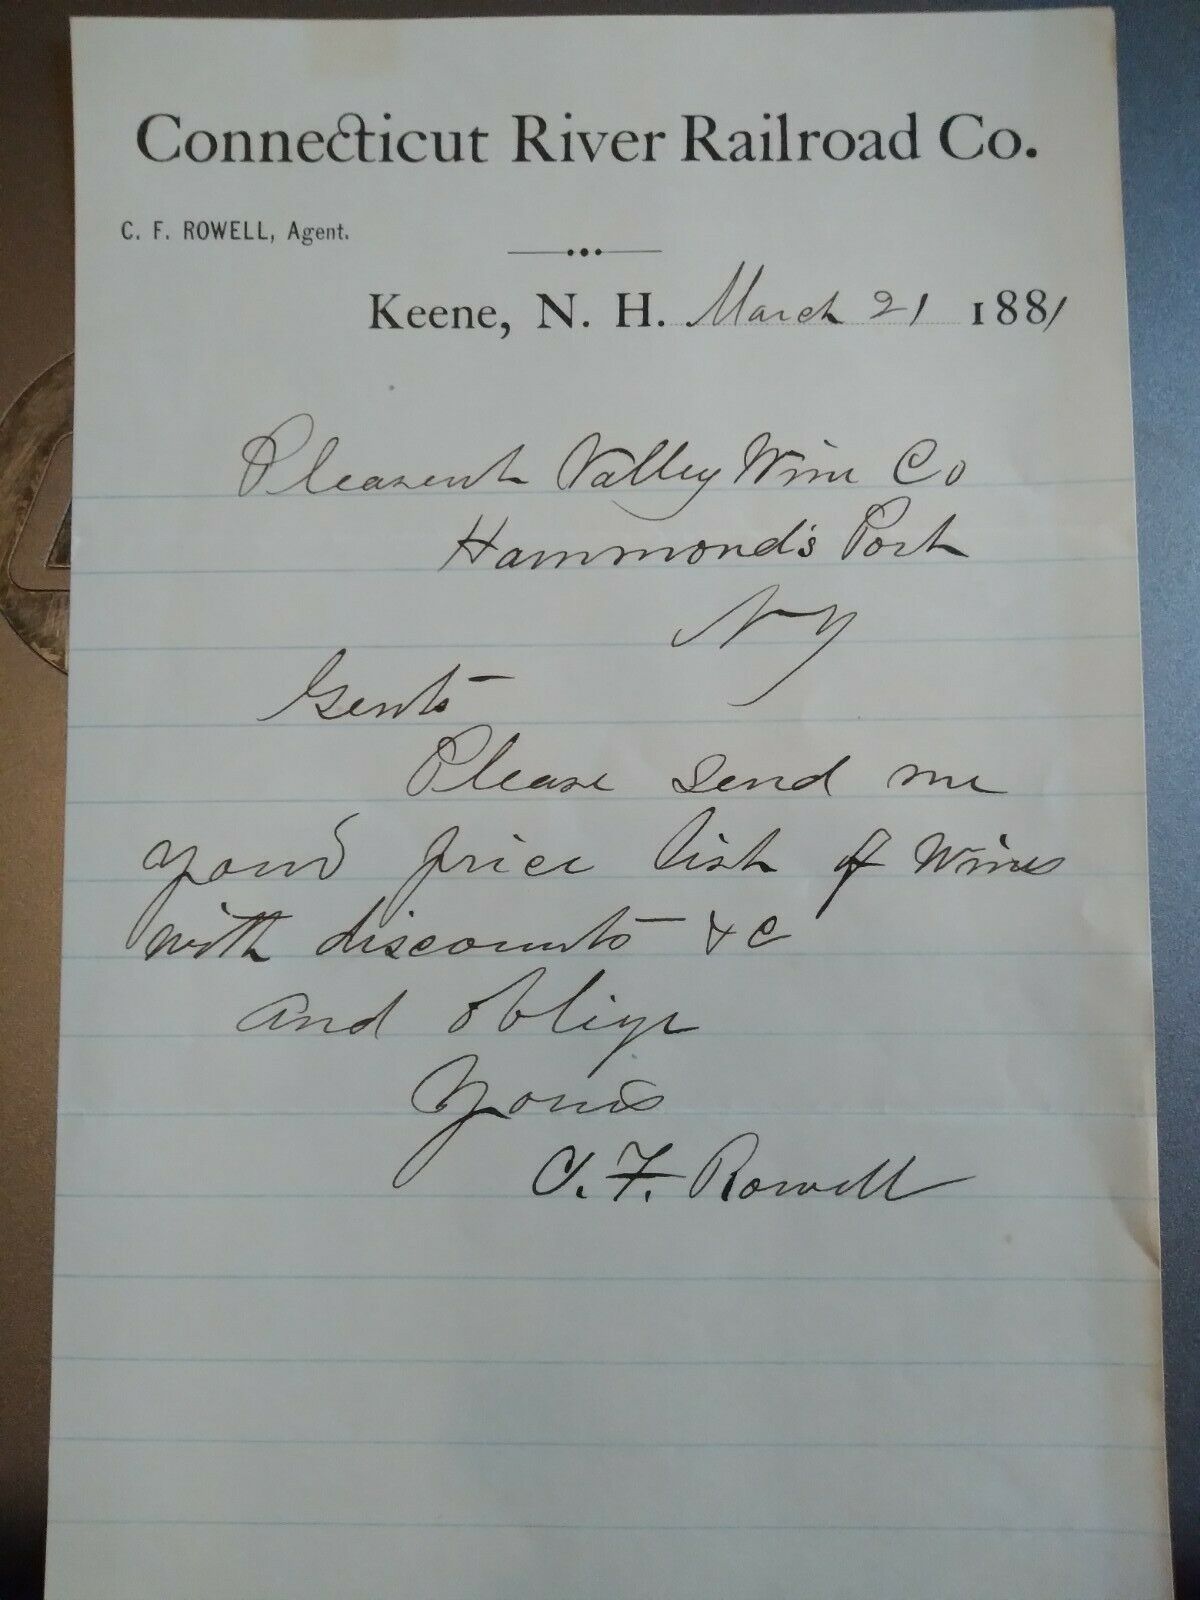 Connecticut River Railroad Co.
C. F. ROWELL, Agent.
Keene, N. H. March 21 1881
Pleasent Valley Wine Co
Hammond's Port
N Y
Gents
Please send me
your price list of Wines
with discounts & c
and oblige
Yours
C. F. Rowell